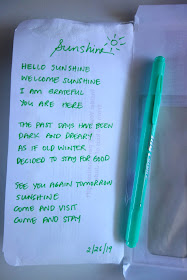 Sunshine
HELLO SUNSHINE
WELCOME SUNSHINE
I AM GRATEFUL
YOU ARE HERE
THE PAST DAYS HAVE BEEN
DARK AND DREARY
AS IF OLD WINTER
DECIDED TO STAY FOR GOOD
SEE YOU AGAIN TOMORROW
SUNSHINE
COME AND VISIT
COME AND STAY
2/26/19